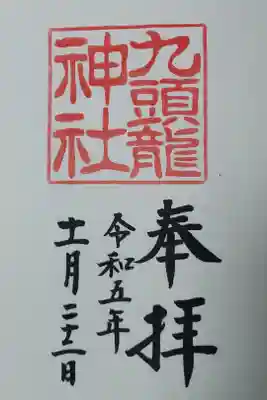 九頭龍
神社
奉拝
令和五年
十一月二十一日